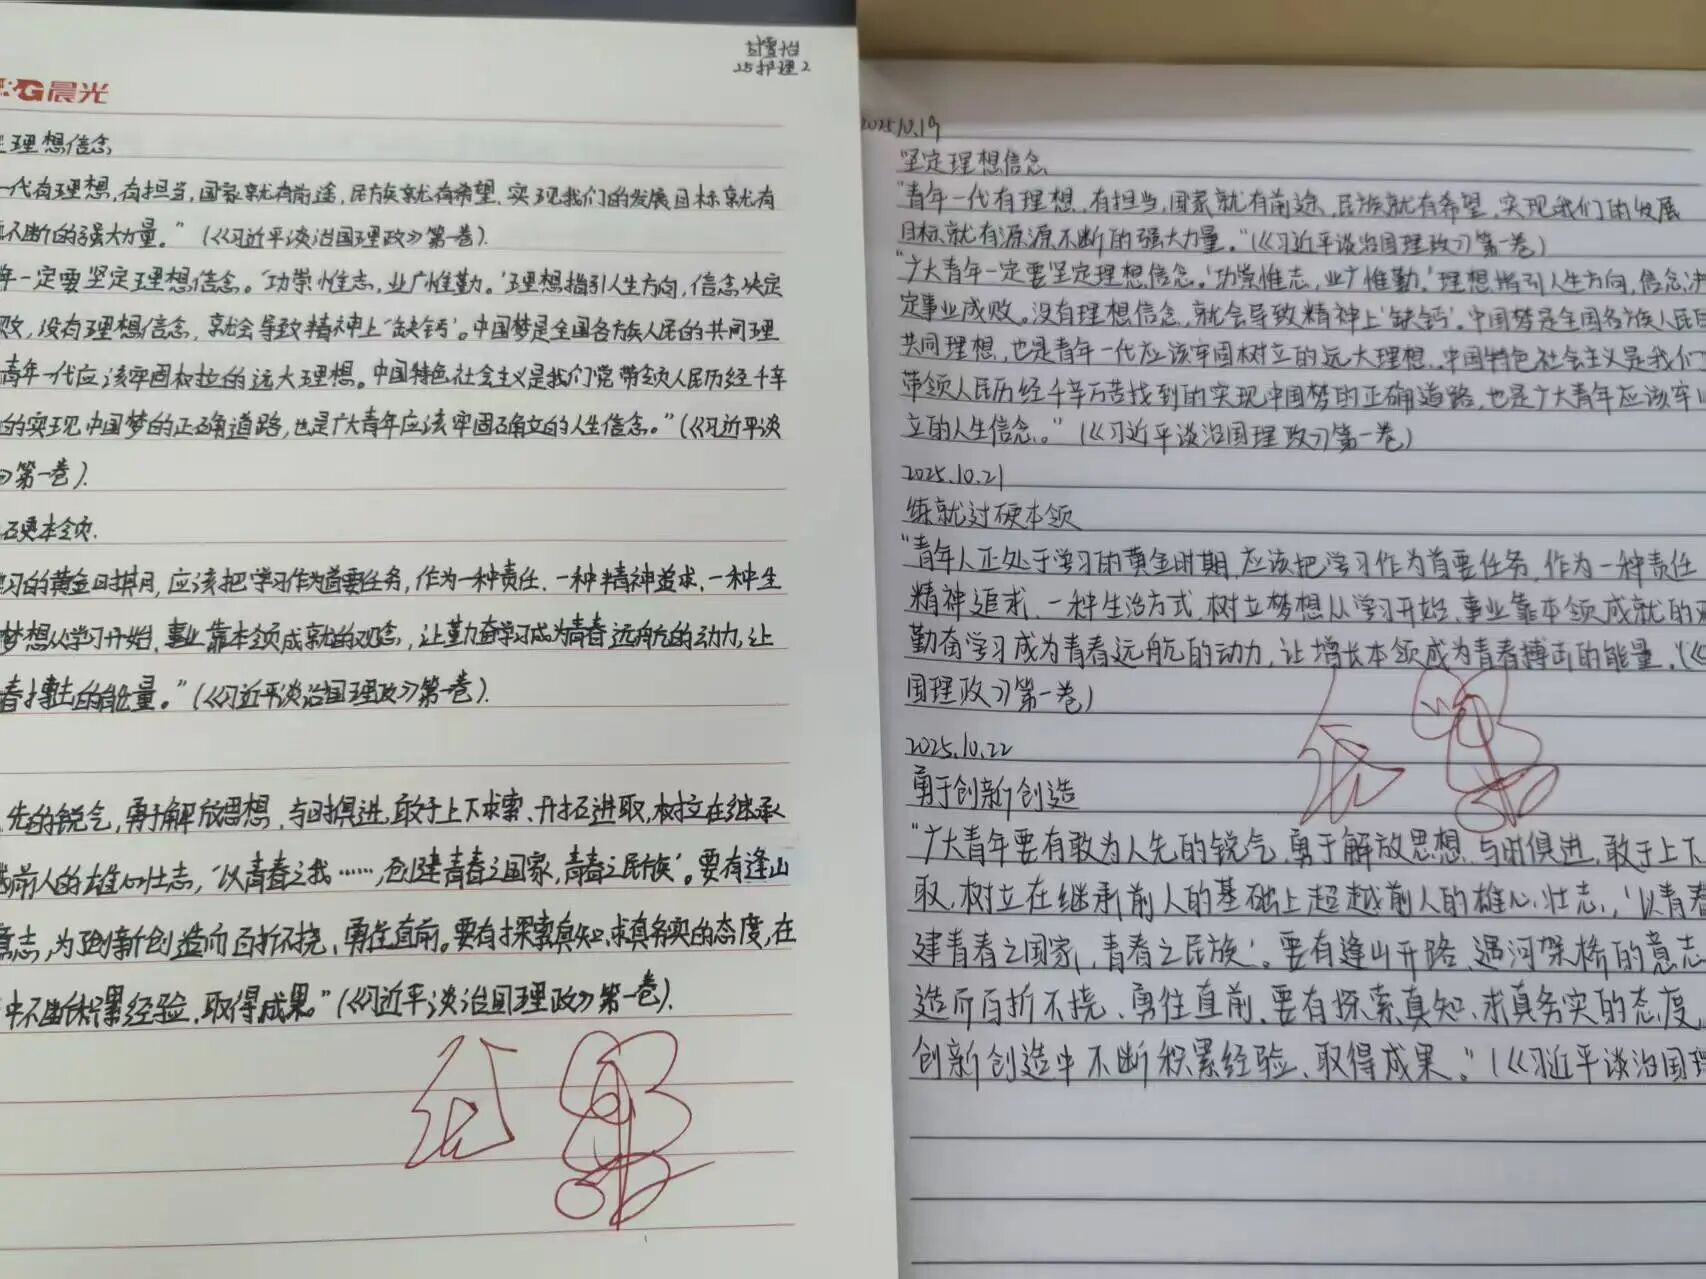 晨光
25护理2
理想信念
一代有理想,有担当,国家就有前途,民族就有希望,实现我们的发展目标就有
不断的强大力量。"(《习近平谈治国理政》第一卷).
年一定要坚定理想信念。'功崇惟志,业广惟勤。'理想指引人生方向,信念决定
败,没有理想信念,就会导致精神上'缺钙'。中国梦是全国各族人民的共同理
青年一代应该牢固树立的远大理想。中国特色社会主义是我们党带领人民历经千辛
的实现中国梦的正确道路,也是广大青年应该牢固确立的人生信念。"(《习近平谈
》第一卷).
硬本领.
习的黄金时期,应该把学习作为首要任务,作为一种责任、一种精神追求、一种生
梦想从学习开始、事业靠本领成就的观念,让勤奋学习成为青春远航的动力,让
春搏击的能量。"(《习近平谈治国理政》第一卷).
先的锐气,勇于解放思想、与时俱进,敢于上下求索、开拓进取,树立在继承
前人的雄心壮志,'以青春之我……,创建青春之国家,青春之民族'。要有逢山
意志,为了创新创造而百折不挠、勇往直前。要有探索真知、求真务实的态度,在
中不断积累经验、取得成果。"(《习近平谈治国理政》第一卷).
2025.10.19
坚定理想信念
"青年一代有理想、有担当,国家就有前途、民族就有希望,实现我们的发展
目标就有源源不断的强大力量。"(《习近平谈治国理政》第一卷)
"广大青年一定要坚定理想信念。'功崇惟志,业广惟勤。'理想指引人生方向,信念决
定事业成败。没有理想信念,就会导致精神上'缺钙'。中国梦是全国各族人民的
共同理想,也是青年一代应该牢固树立的远大理想。中国特色社会主义是我们
带领人民历经千辛万苦找到的实现中国梦的正确道路,也是广大青年应该牢
立的人生信念。"(《习近平谈治国理政》第一卷)
2025.10.21
练就过硬本领
"青年人正处于学习的黄金时期,应该把学习作为首要任务,作为一种责任
精神追求、一种生活方式,树立梦想从学习开始、事业靠本领成就的
勤奋学习成为青春远航的动力,让增长本领成为青春搏击的能量。(《
国理政》第一卷)
2025.10.22
勇于创新创造
"广大青年要有敢为人先的锐气,勇于解放思想、与时俱进,敢于上下
取,树立在继承前人的基础上超越前人的雄心壮志,'以青春
建青春之国家,青春之民族'。要有逢山开路、遇河架桥的意志
造而百折不挠、勇往直前。要有探索真知、求真务实的态度,
创新创造中不断积累经验、取得成果。"(《习近平谈治国理